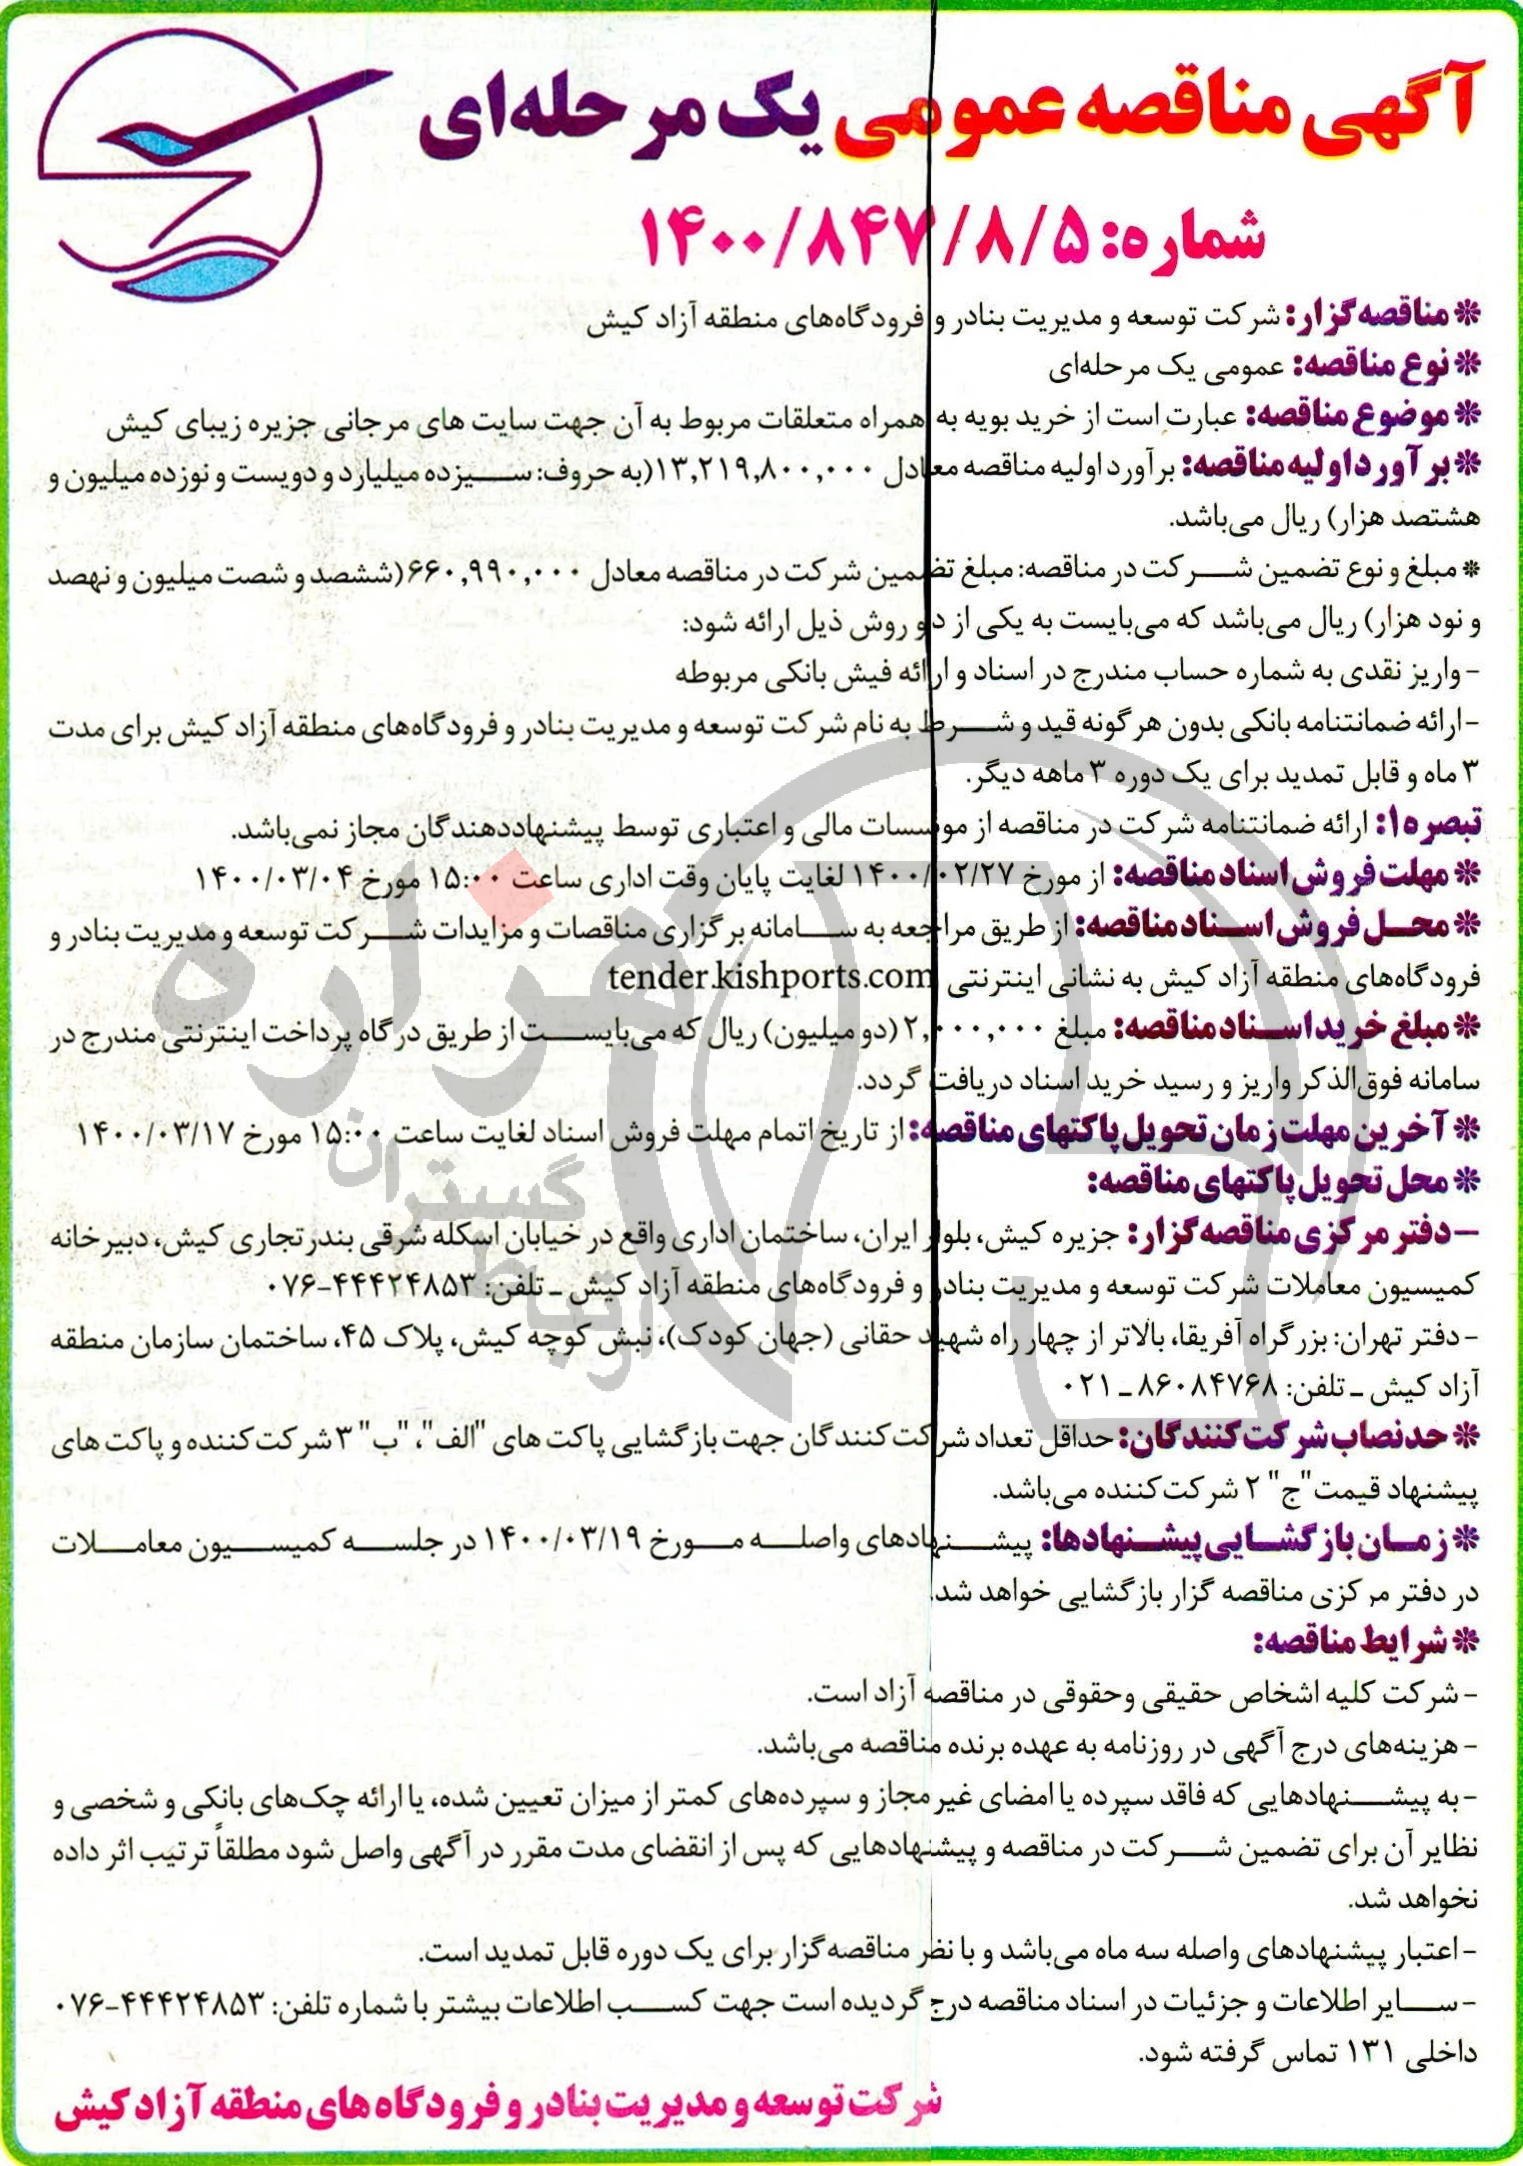 آگهی مناقصه عمومی یک مرحله‌ای
شماره: ۱۴۰۰/۸۴۷/۸/۵
❊ مناقصه‌گزار: شرکت توسعه و مدیریت بنادر و فرودگاه‌های منطقه آزاد کیش
❊ نوع مناقصه: عمومی یک مرحله‌ای
❊ موضوع مناقصه: عبارت است از خرید بویه به همراه متعلقات مربوط به آن جهت سایت های مرجانی جزیره زیبای کیش
❊ برآورد اولیه مناقصه: برآورد اولیه مناقصه معادل ۱۳,۲۱۹,۸۰۰,۰۰۰(به حروف: سیزده میلیارد و دویست و نوزده میلیون و
هشتصد هزار) ریال می‌باشد.
❊ مبلغ و نوع تضمین شرکت در مناقصه: مبلغ تضمین شرکت در مناقصه معادل ۶۶۰,۹۹۰,۰۰۰(ششصد و شصت میلیون و نهصد
و نود هزار) ریال می‌باشد که می‌بایست به یکی از دو روش ذیل ارائه شود:
- واریز نقدی به شماره حساب مندرج در اسناد و ارائه فیش بانکی مربوطه
-ارائه ضمانتنامه بانکی بدون هرگونه قید و شرط به نام شرکت توسعه و مدیریت بنادر و فرودگاه‌های منطقه آزاد کیش برای مدت
۳ ماه و قابل تمدید برای یک دوره ۳ ماهه دیگر.
تبصره۱: ارائه ضمانتنامه شرکت در مناقصه از موسسات مالی و اعتباری توسط پیشنهاددهندگان مجاز نمی‌باشد.
❊ مهلت فروش اسناد مناقصه: از مورخ ۱۴۰۰/۰۲/۲۷ لغایت پایان وقت اداری ساعت ۱۵:۰۰ مورخ ۱۴۰۰/۰۳/۰۴
❊ محل فروش اسناد مناقصه: از طریق مراجعه به سامانه برگزاری مناقصات و مزایدات شرکت توسعه و مدیریت بنادر و
فرودگاه‌های منطقه آزاد کیش به نشانی اینترنتی tender.kishports.com
❊ مبلغ خرید اسناد مناقصه: مبلغ ۲,۰۰۰,۰۰۰ (دو میلیون) ریال که می‌بایست از طریق درگاه پرداخت اینترنتی مندرج در
سامانه فوق‌الذکر واریز و رسید خرید اسناد دریافت گردد.
❊ آخرین مهلت زمان تحویل پاکتهای مناقصه: از تاریخ اتمام مهلت فروش اسناد لغایت ساعت ۱۵:۰۰ مورخ ۱۴۰۰/۰۳/۱۷
❊ محل تحویل پاکتهای مناقصه:
– دفتر مرکزی مناقصه‌گزار: جزیره کیش، بلوار ایران، ساختمان اداری واقع در خیابان اسکله شرقی بندر تجاری کیش، دبیرخانه
کمیسیون معاملات شرکت توسعه و مدیریت بنادر و فرودگاه‌های منطقه آزاد کیش ـ تلفن: ۴۴۴۲۴۸۵۳-۰۷۶
- دفتر تهران: بزرگراه آفریقا، بالاتر از چهار راه شهید حقانی (جهان کودک)، نبش کوچه کیش، پلاک ۴۵، ساختمان سازمان منطقه
آزاد کیش ـ تلفن: ۸۶۰۸۴۷۶۸ ـ ۰۲۱
❊ حدنصاب شرکت‌کنندگان: حداقل تعداد شرکت‌کنندگان جهت بازگشایی پاکت های "الف"، "ب" ۳ شرکت‌کننده و پاکت های
پیشنهاد قیمت"ج" ۲ شرکت‌کننده می‌باشد.
❊ زمان بازگشایی پیشنهادها: پیشنهادهای واصله مورخ ۱۴۰۰/۰۳/۱۹ در جلسه کمیسیون معاملات
در دفتر مرکزی مناقصه گزار بازگشایی خواهد شد.
❊ شرایط مناقصه:
- شرکت کلیه اشخاص حقیقی وحقوقی در مناقصه آزاد است.
- هزینه‌های درج آگهی در روزنامه به عهده برنده مناقصه می‌باشد.
- به پیشنهادهایی که فاقد سپرده یا امضای غیر مجاز و سپرده‌های کمتر از میزان تعیین شده، یا ارائه چک‌های بانکی و شخصی و
نظایر آن برای تضمین شرکت در مناقصه و پیشنهادهایی که پس از انقضای مدت مقرر در آگهی واصل شود مطلقاً ترتیب اثر داده
نخواهد شد.
- اعتبار پیشنهادهای واصله سه ماه می‌باشد و با نظر مناقصه‌گزار برای یک دوره قابل تمدید است.
- سایر اطلاعات و جزئیات در اسناد مناقصه درج گردیده است جهت کسب اطلاعات بیشتر با شماره تلفن: ۴۴۴۲۴۸۵۳-۰۷۶
داخلی ۱۳۱ تماس گرفته شود.
شرکت توسعه و مدیریت بنادر و فرودگاه های منطقه آزاد کیش
هزاره
گستران
ارتباط